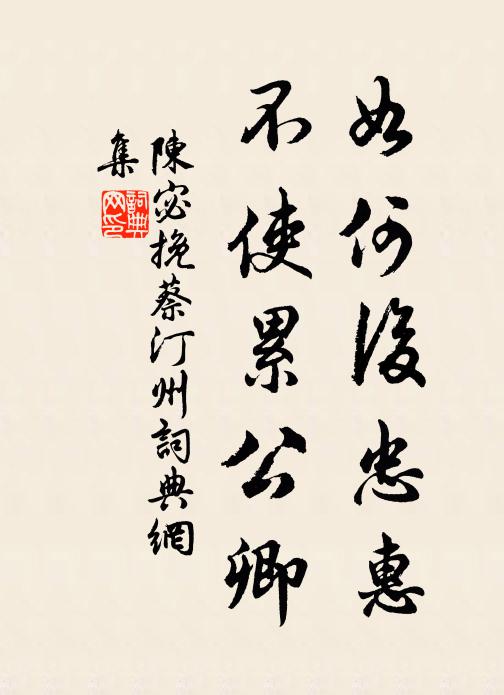 如何後忠惠
不使累公卿
陳宓挽蔡汀州詞典網
集
詞典網印